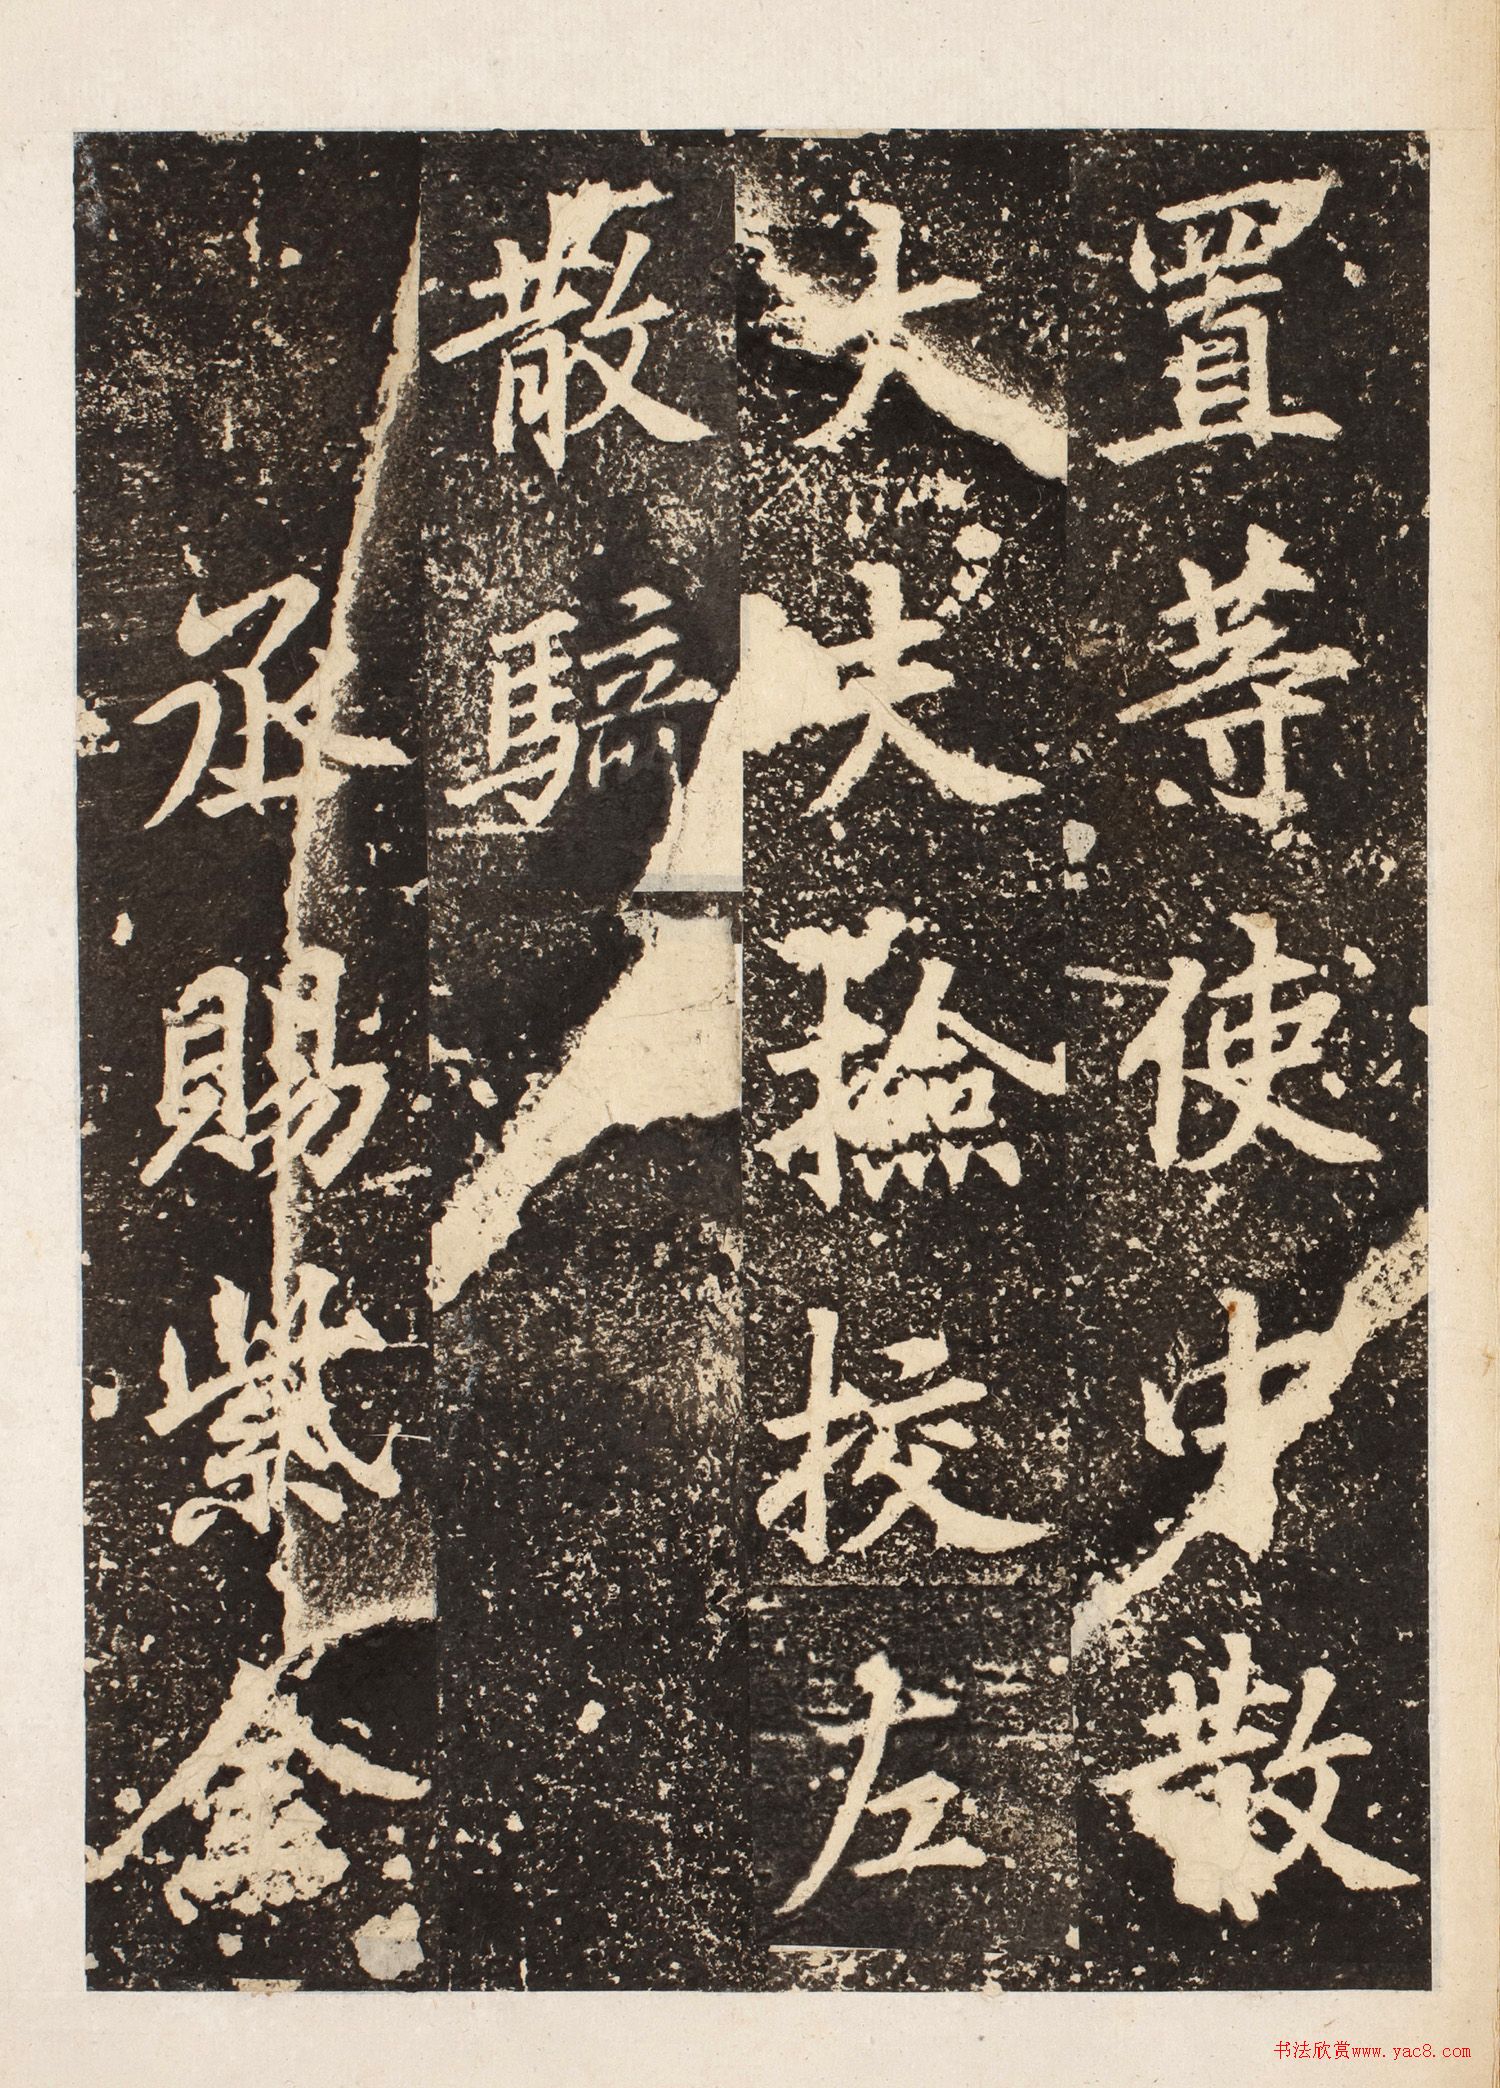 置等使中散
大夫撿挍左
散騎
丞賜紫金
书法欣赏www.yac8.com